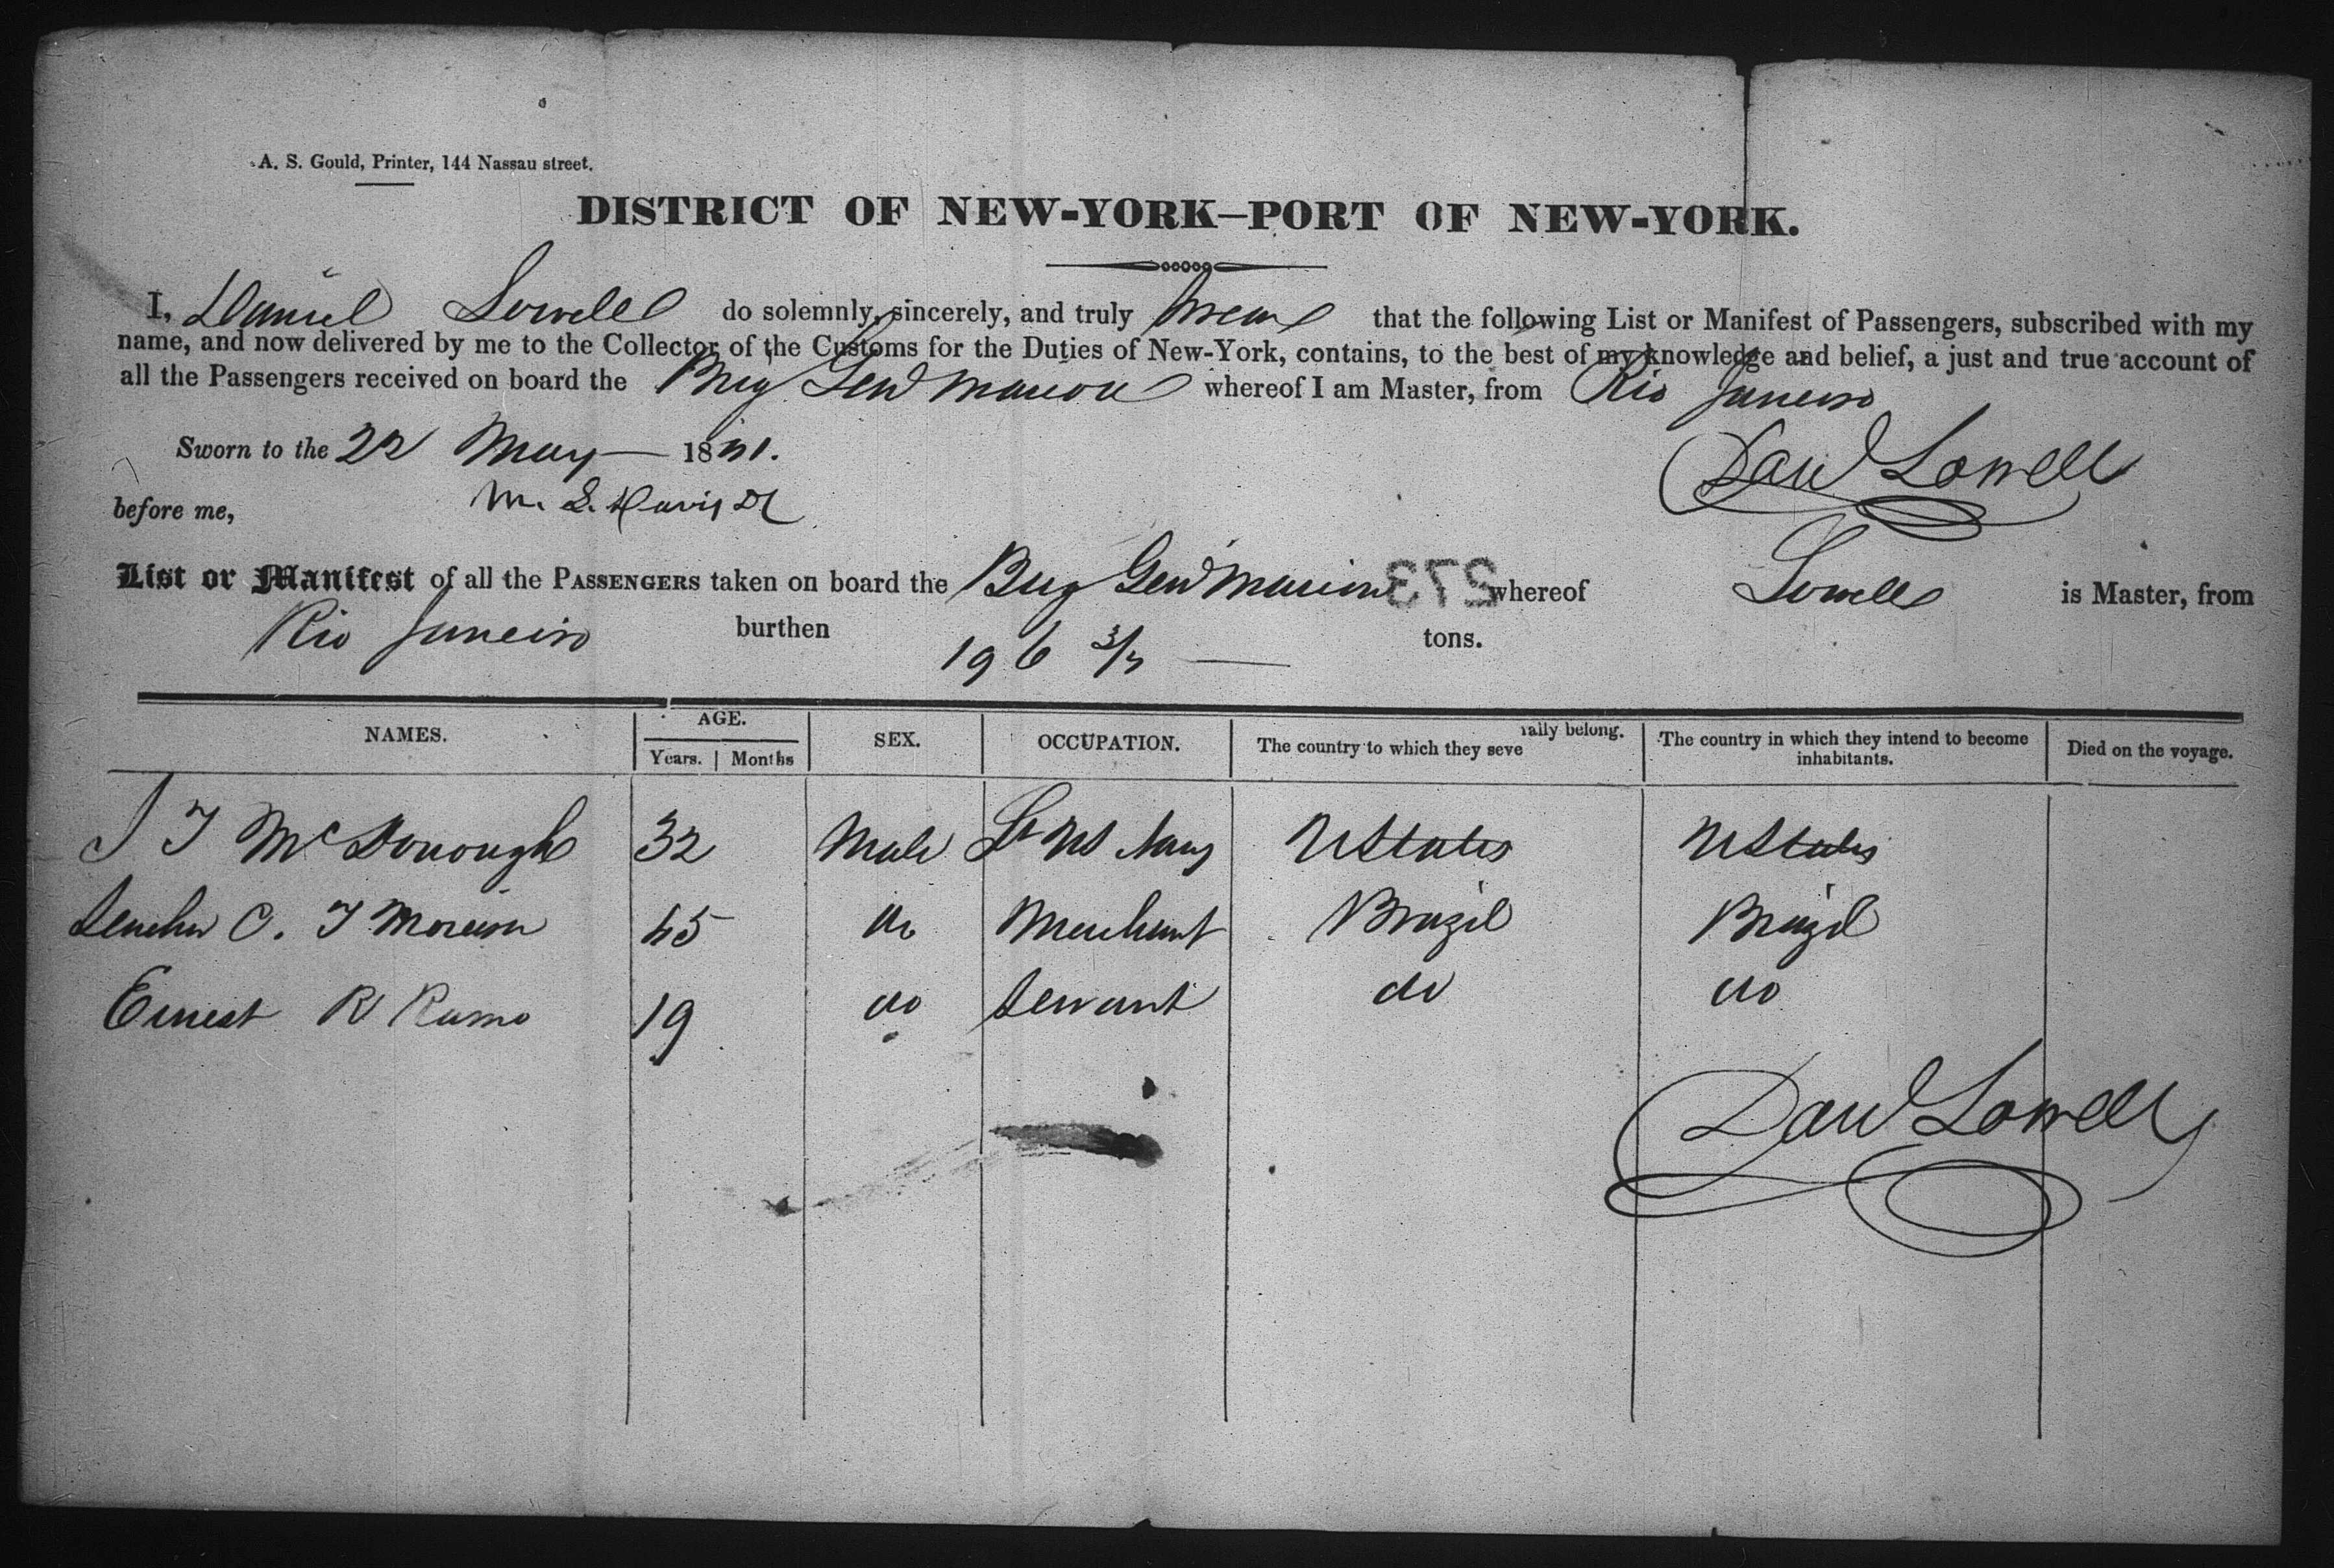 A. S. Gould, Printer, 144 Nassau street.
DISTRICT OF NEW-YORK—PORT OF NEW-YORK.
I, Daniel Lowell do solemnly, sincerely, and truly swear that the following List or Manifest of Passengers, subscribed with my
name, and now delivered by me to the Collector of the Customs for the Duties of New-York, contains, to the best of my knowledge and belief, a just and true account of
all the Passengers received on board the Brig Genl Marion whereof I am Master, from Rio Janeiro
Sworn to the 22 May 1831.
Danl Lowell
before me, M. L. Davis
List or Manifest of all the PASSENGERS taken on board the Brig Genl Marion 273 whereof Lowell is Master, from
Rio Janeiro burthen 196 tons.
NAMES. AGE. Years. Months SEX. OCCUPATION. The country to which they severally belong. The country in which they intend to become inhabitants. Died on the voyage.
J T McDonough 32 Male Lt US Navy UStates UStates
C. T 45 do Merchant Brazil Brazil
Ernest R 19 do Servant do do
Danl Lowell